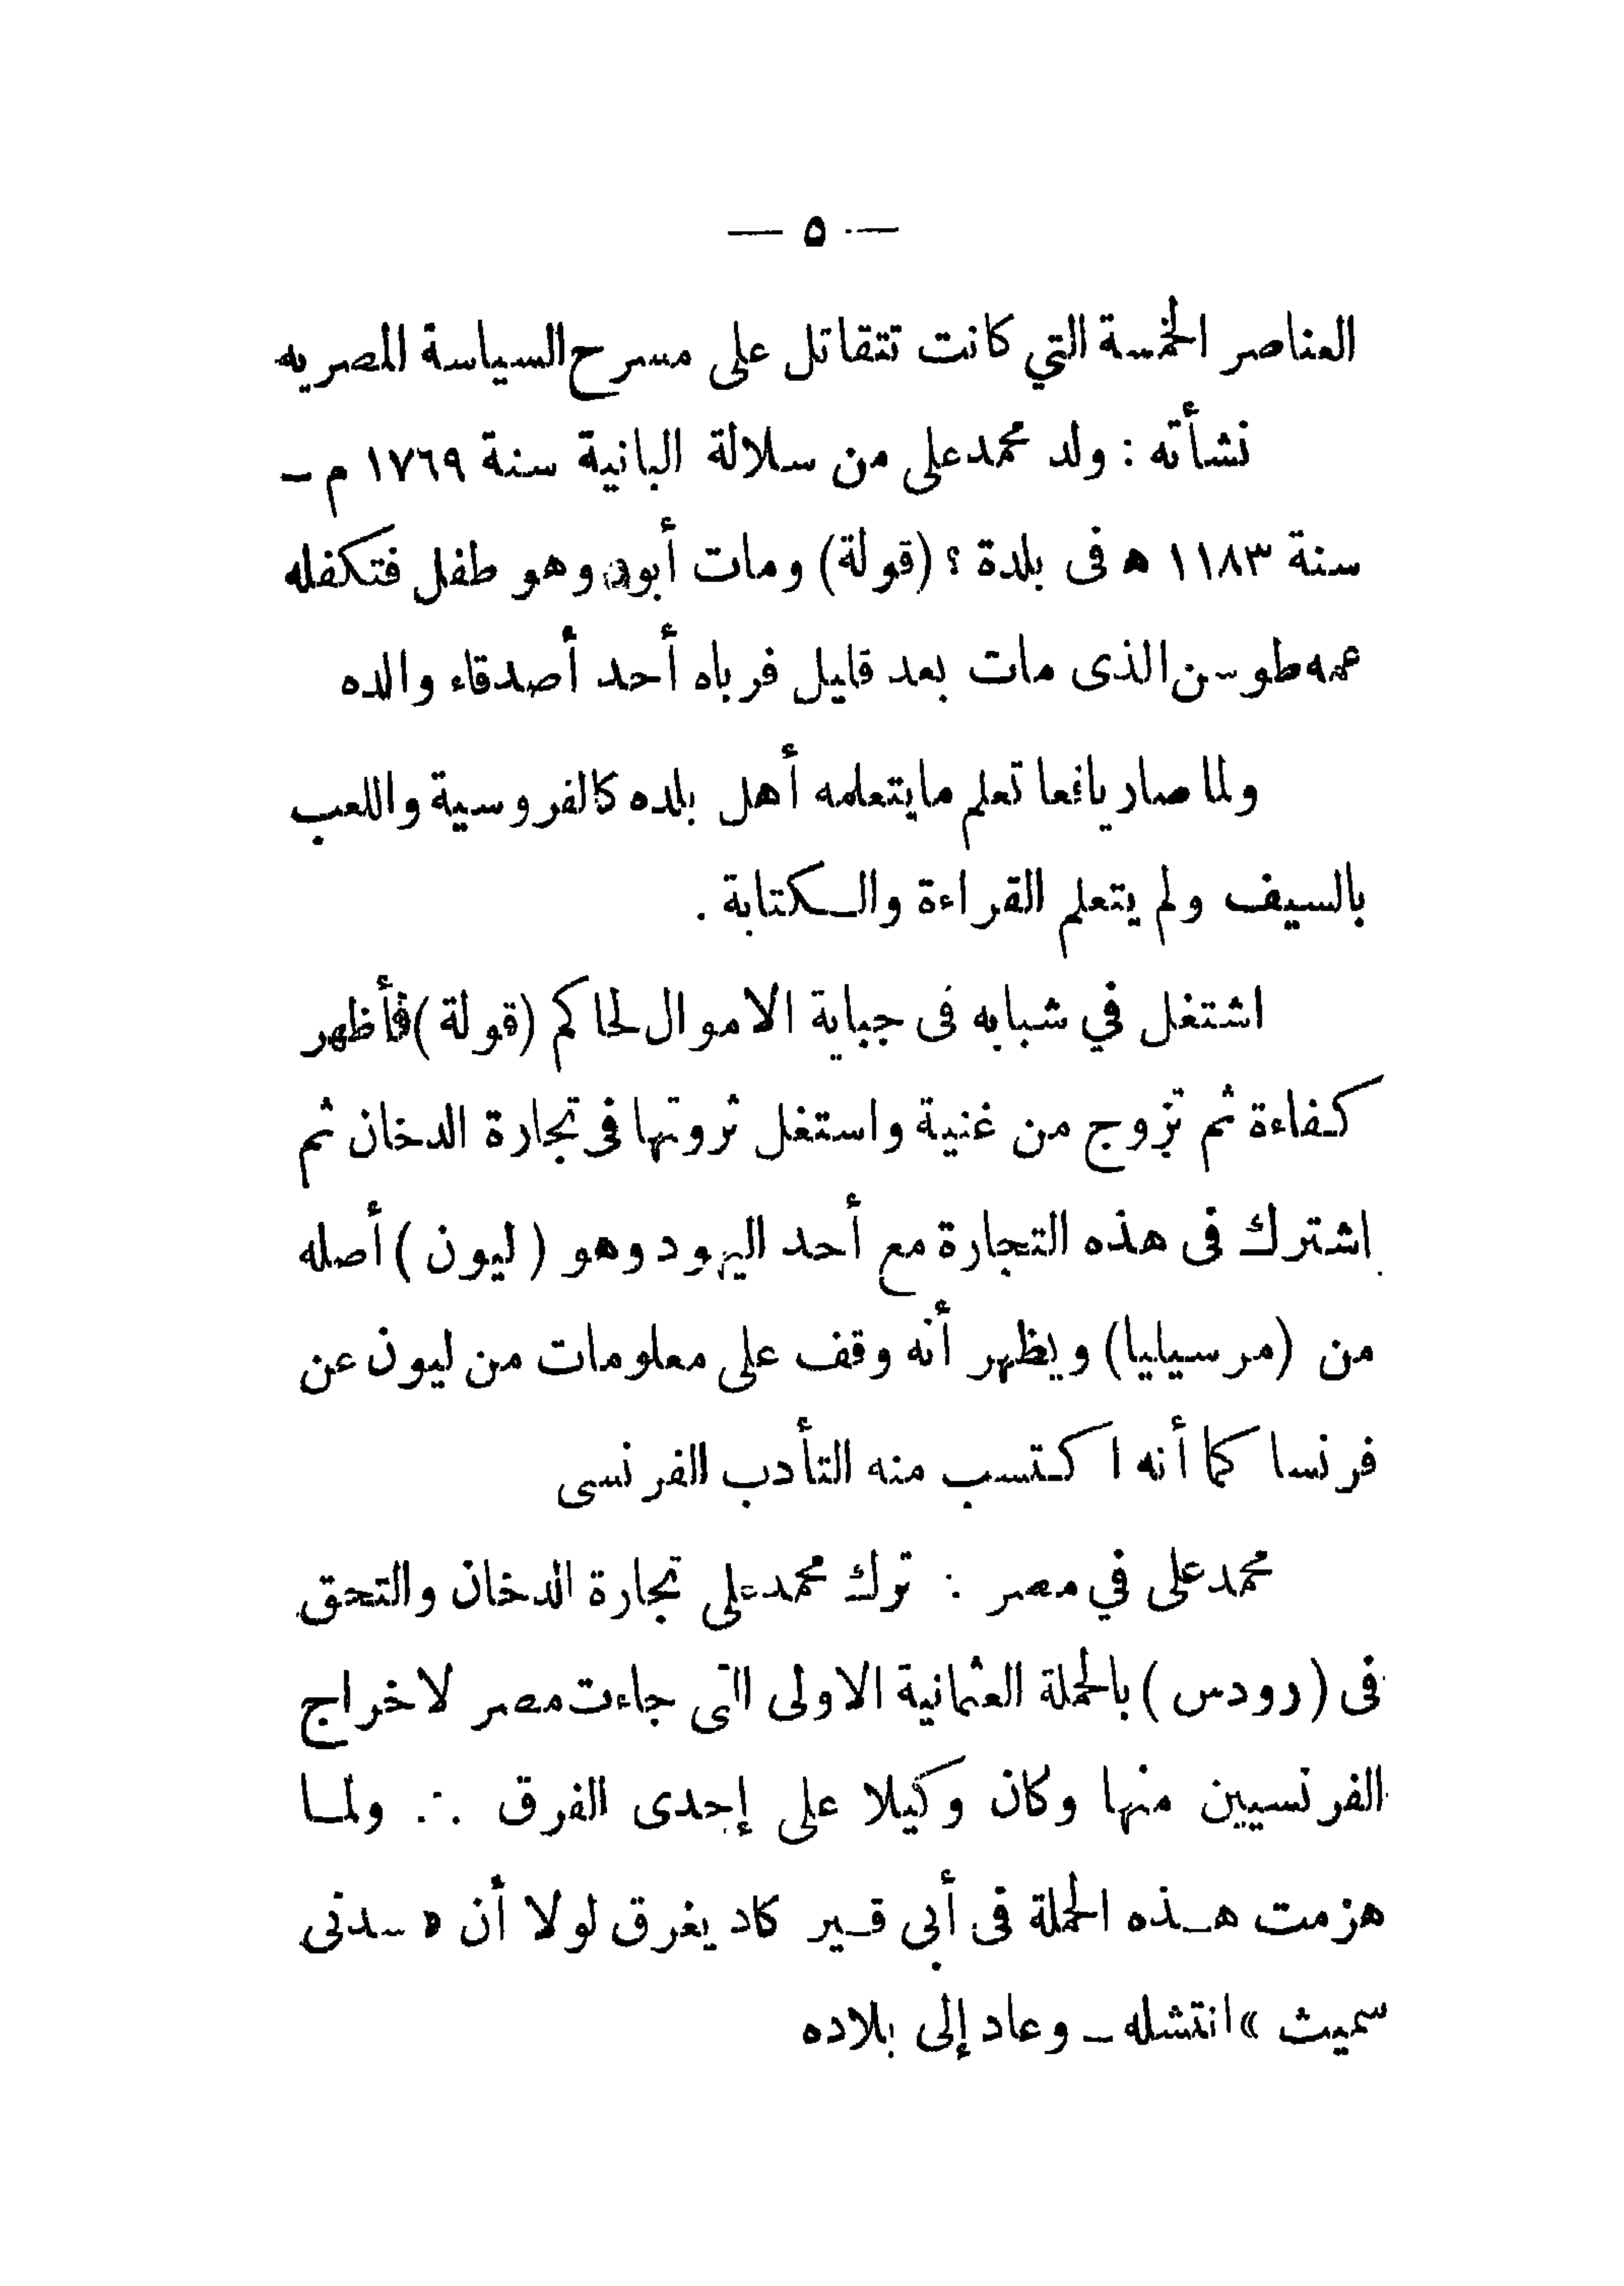 — ٥ —
العناصر الخمسة التي كانت تتقاتل على مسرح السياسة المصريه
نشأته : ولد محمد على من سلالة البانية سنة ١٧٦٩ م –
سنة ١١٨٣ ه فى بلدة ؟ (قولة) ومات أبوه وهو طفل فتكفله
عمه طوسن الذى مات بعد قليل فرباه أحد أصدقاء والده
ولما صار يافعا تعلم مايتعلمه أهل بلده كالفروسية واللعب
بالسيف ولم يتعلم القراءة والكتابة .
اشتغل في شبابه فى جباية الاموال لحاكم (قولة) فأظهر
كفاءة ثم تزوج من غنية واستغل ثروتها فى تجارة الدخان ثم
اشترك فى هذه التجارة مع أحد اليهود وهو ( ليون ) أصله
من (مرسيليا) ويظهر أنه وقف على معلومات من ليون عن
فرنسا كما أنه اكتسب منه التأدب الفرنسى
محمد على في مصر : ترك محمد على تجارة الدخان والتحق
فى ( رودس ) بالحملة العثمانية الاولى التى جاءت مصر لاخراج
الفرنسيين منها وكان وكيلا على إحدى الفرق ∴ ولما
هزمت هذه الحملة فى أبى قير كاد يغرق لولا أن « سدنى
سميث » انتشله – وعاد إلى بلاده